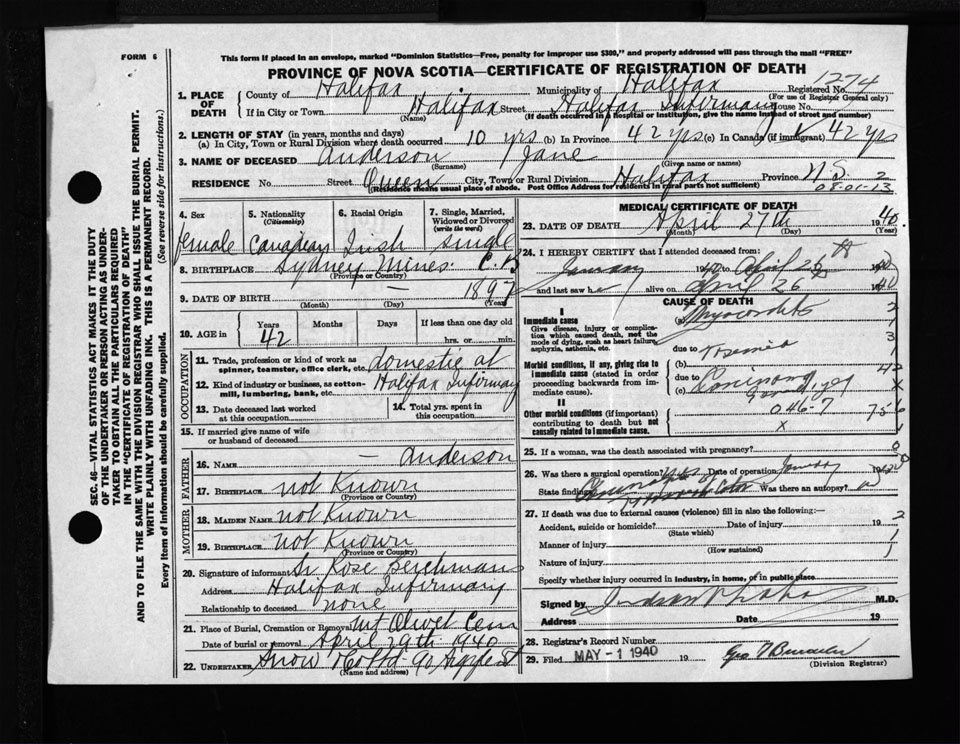 FORM 6
This form if placed in an envelope, marked "Dominion Statistics—Free, penalty for improper use $300," and properly addressed will pass through the mail "FREE"
PROVINCE OF NOVA SCOTIA—CERTIFICATE OF REGISTRATION OF DEATH
SEC. 46—VITAL STATISTICS ACT MAKES IT THE DUTY
OF THE UNDERTAKER OR PERSON ACTING AS UNDER-
TAKER TO OBTAIN ALL THE PARTICULARS REQUIRED
IN THE "CERTIFICATE OF REGISTRATION OF DEATH"
AND TO FILE THE SAME WITH THE DIVISION REGISTRAR WHO SHALL ISSUE THE BURIAL PERMIT.
WRITE PLAINLY WITH UNFADING INK. THIS IS A PERMANENT RECORD.
Every item of information should be carefully supplied. (See reverse side for instructions.)
1. PLACE OF DEATH County of Halifax Municipality of Halifax Registered No. 1274
(For use of Registrar General only)
If in City or Town Halifax (Name) Street Halifax Infirmary House No.
(If death occurred in a hospital or institution, give the name instead of street and number)
2. LENGTH OF STAY (in years, months and days)
(a) In City, Town or Rural Division where death occurred 10 yrs (b) In Province 42 yrs (c) In Canada (if immigrant) 42 yrs
3. NAME OF DECEASED Anderson Jane
(Surname) (Given name or names)
RESIDENCE No. Street Queen City, Town or Rural Division Halifax Province N.S. 2
(Residence means usual place of abode. Post Office Address for residents in rural parts not sufficient) 08-01-13
4. Sex female
5. Nationality (Citizenship) Canadian
6. Racial Origin Irish
7. Single, Married, Widowed or Divorced (write the word) single
8. BIRTHPLACE Sydney Mines C.B
(Province or Country)
9. DATE OF BIRTH — 1897
(Month) (Day) (Year)
10. AGE in Years 42 Months Days If less than one day old hrs. or min.
OCCUPATION
11. Trade, profession or kind of work as spinner, teamster, office clerk, etc. domestic at
12. Kind of industry or business, as cotton-mill, lumbering, bank, etc. Halifax Infirmary
13. Date deceased last worked at this occupation
14. Total yrs. spent in this occupation
15. If married give name of wife or husband of deceased
FATHER
16. NAME — Anderson
17. BIRTHPLACE not Known
(Province or Country)
MOTHER
18. MAIDEN NAME not Known
19. BIRTHPLACE not Known
(Province or Country)
20. Signature of informant Sr Rose Berchmans
Address Halifax Infirmary
Relationship to deceased none
21. Place of Burial, Cremation or Removal Mt Olivet Cem
Date of burial or removal April 29th 1940
22. UNDERTAKER Snow & Co Ltd 90 Argyle St
(Name and address)
MEDICAL CERTIFICATE OF DEATH
23. DATE OF DEATH April 27th 1940
(Month) (Day) (Year)
24. I HEREBY CERTIFY that I attended deceased from:
January 1940 to April 26 1940
and last saw h alive on April 26 1940
CAUSE OF DEATH
I
Immediate cause (a) Myocarditis
Give disease, injury or complication which caused death, not the mode of dying, such as heart failure, asphyxia, asthenia, etc.
due to
Morbid conditions, if any, giving rise to immediate cause (stated in order proceeding backwards from immediate cause).
(b)
due to
(c) Carcinoma
II
Other morbid conditions (if important) contributing to death but not causally related to immediate cause. 046-7
x
25. If a woman, was the death associated with pregnancy?
26. Was there a surgical operation? Yes Date of operation January 1940
State findings Was there an autopsy?
27. If death was due to external causes (violence) fill in also the following:—
Accident, suicide or homicide? Date of injury 19
(State which)
Manner of injury
(How sustained)
Nature of injury
Specify whether injury occurred in industry, in home, or in public place
Signed by M.D.
Address Date 19
28. Registrar's Record Number
29. Filed MAY -1 1940 19
(Division Registrar)